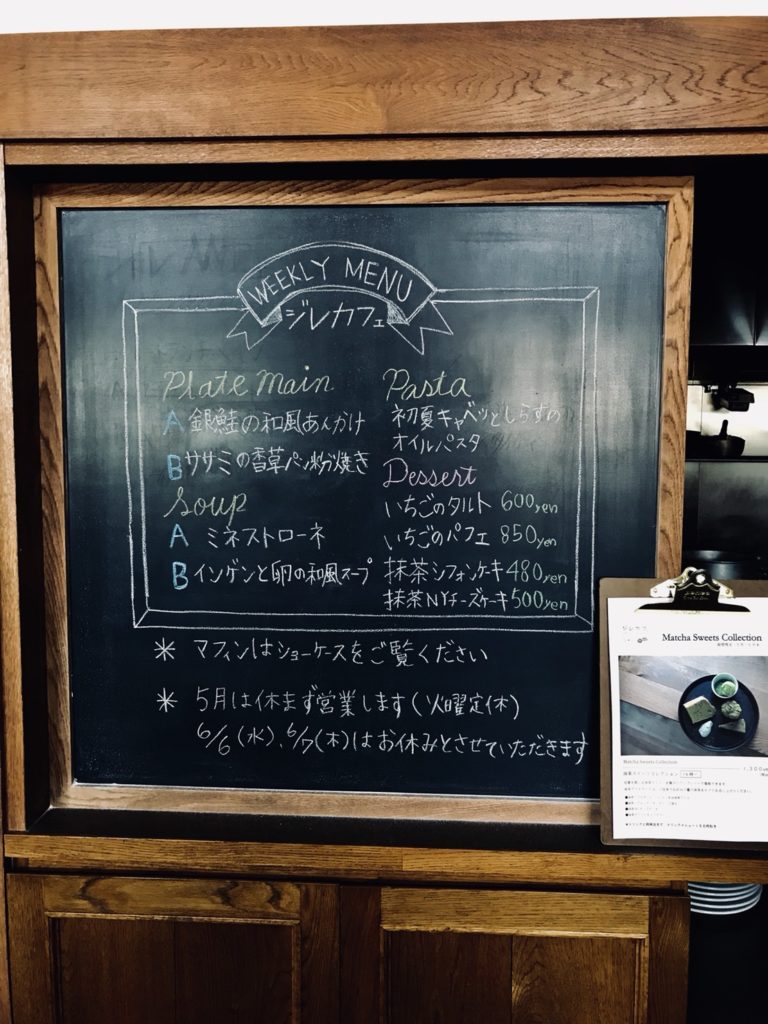 WEEKLY MENU
ジレカフェ
Plate Main
A 銀鮭の和風あんかけ
B ササミの香草パン粉焼き
Soup
A ミネストローネ
B インゲンと卵の和風スープ
Pasta
初夏キャベツとしらすの
オイルパスタ
Dessert
いちごのタルト 600yen
いちごのパフェ 850yen
抹茶シフォンケーキ 480yen
抹茶NYチーズケーキ 500yen
* マフィンはショーケースをご覧ください
* 5月は休まず営業します(火曜定休)
6/6(水)、6/7(木)はお休みとさせていただきます
Matcha Sweets Collection
Matcha Sweets Collection